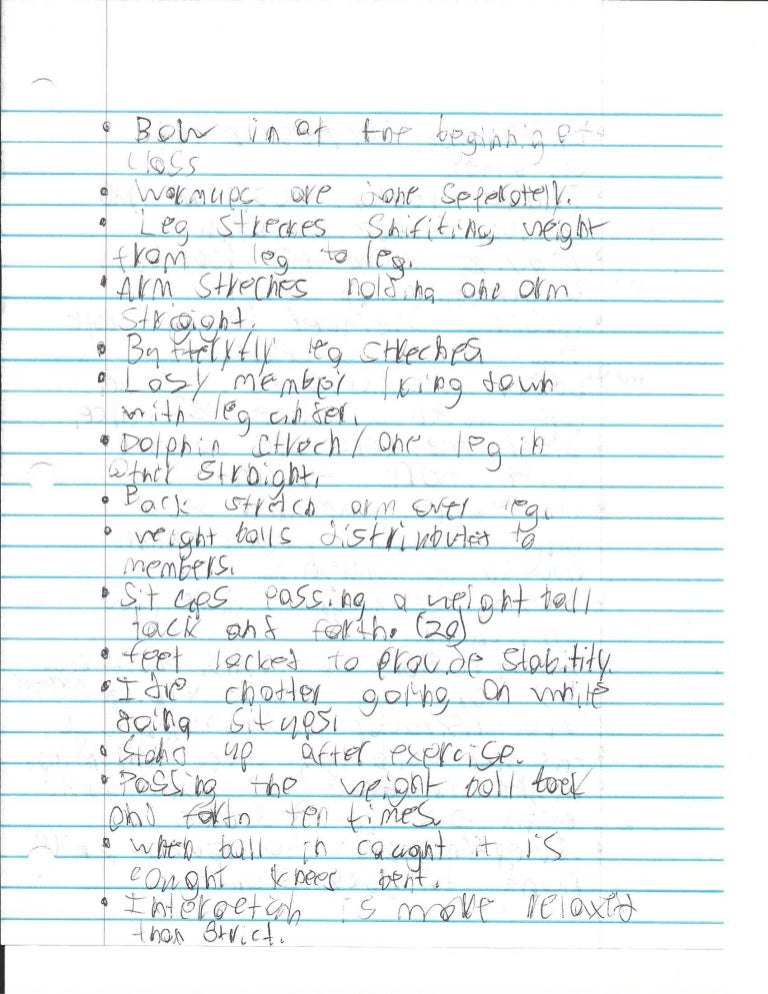 • Bow in at the beginning of
class
• Warmups are done seperately.
• Leg streches Shifiting weight
from leg to leg.
• Arm Streches holding one arm
straight.
• Butterlyfly leg streches
• Lasy member lying down
with leg under.
• Dolphin strech / one leg in
other straight.
• Back stretch arm over leg.
• weight balls distributes to
members.
• Sit ups passing a weight ball
back and forth. (20)
• feet locked to provide stability.
• Idle chatter going on while
doing sit ups.
• Stand up after exercise.
• Passing the weight ball back
and forth ten times.
• When ball in caught it is
cought knees bent.
• Interaction is more relaxed
than strict.